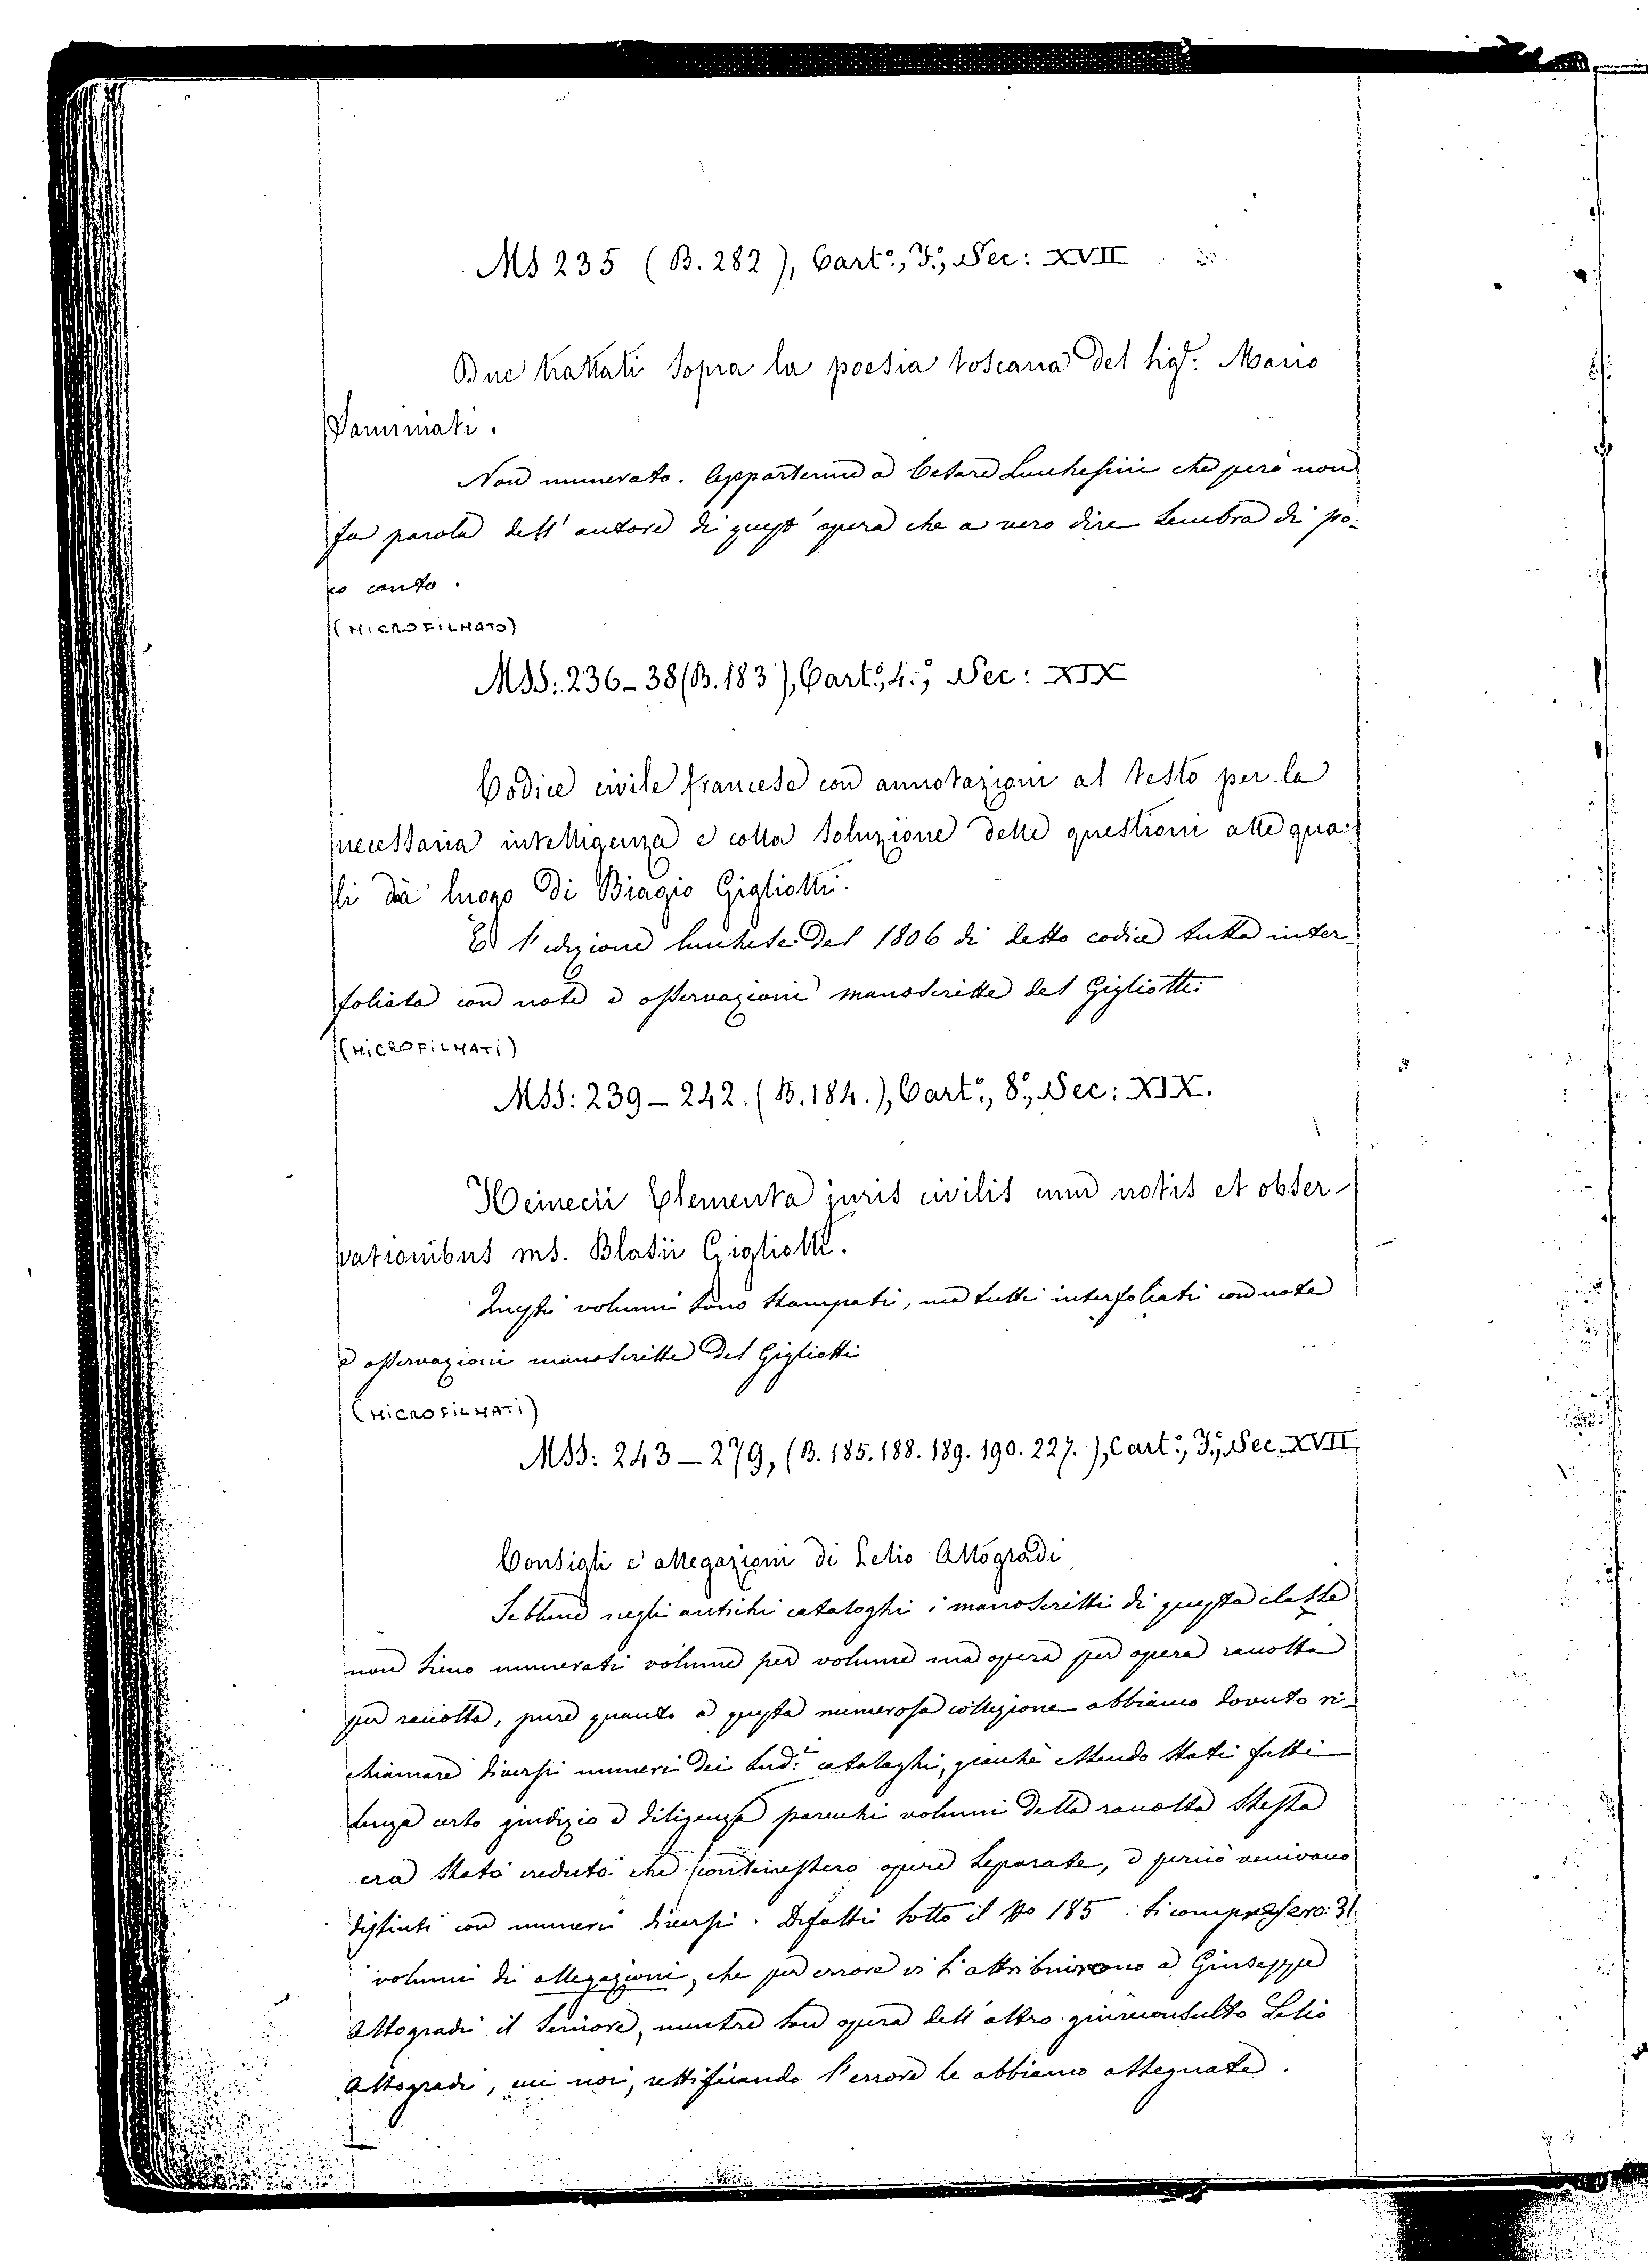 MS 235 (B. 282), Cart.º, F.º, Sec: XVII
Due trattati sopra la poesia toscana del sig.r Mario
Daminiati.
Non numerato. Appartenne a Cesare Lucchesini che però non
fa parola dell' autore di quest' opera che a vero dire sembra di po-
co conto.
(MICROFILMATO)
MSS: 236-38 (B. 183), Cart.º, 4.º, Sec: XIX
Codice civile francese con annotazioni al testo per la
necessaria intelligenza e colla soluzione delle questioni alle qua-
li dà luogo di Biagio Gigliotti.
È l'edizione lucchese del 1806 di detto codice tutta inter-
foliata con note e osservazioni manoscritte del Gigliotti
(MICROFILMATI)
MSS: 239-242. (B. 184.), Cart.º, 8.º, Sec: XIX.
Heinecii Elementa juris civilis cum notis et obser-
vationibus ms. Blasii Gigliotti.
Questi volumi sono stampati, ma tutti interfoliati con note
e osservazioni manoscritte del Gigliotti
(MICROFILMATI)
MSS: 243-279, (B. 185. 188. 189. 190. 227.), Cart.º, F.º, Sec. XVII
Consigli e allegazioni di Lelio Altogradi
Sebbene negli antichi cataloghi i manoscritti di questa classe
non sieno numerati volume per volume ma opera per opera raccolta
per raccolta, pure quanto a questa numerosa collezione abbiamo dovuto ri-
chiamare diversi numeri dei sud.i cataloghi, giacchè essendo stati fatti
senza certo giudizio e diligenza parecchi volumi della raccolta stessa
era stato creduto che contenessero opere separate, e perciò venivano
distinti con numeri diversi. Difatti sotto il No 185 si compresero 31
volumi di allegazioni, che per errore vi si attribuirono a Giuseppe
Altogradi il Seniore, mentre son opera dell' altro giureconsulto Lelio
Altogradi, cui noi, rettificando l'errore le abbiamo assegnate.